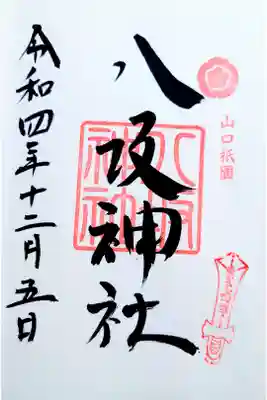 山口祇園
八坂神社
八坂神社
令和四年十二月五日